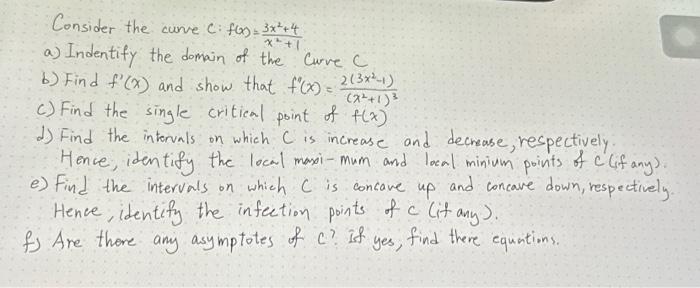 Consider the curve C: f(x) = 3x²+4 / x²+1
a) Indentify the domain of the Curve C
b) Find f'(x) and show that f''(x) = 2(3x²-1) / (x²+1)³
c) Find the single critical point of f(x)
d) Find the intervals on which C is increase and decrease, respectively.
Hence, identify the local maxi-mum and local minium points of C (if any).
e) Find the intervals on which C is concave up and concave down, respectively.
Hence, identify the infection points of C (if any).
f) Are there any asymptotes of C? If yes, find there equations.